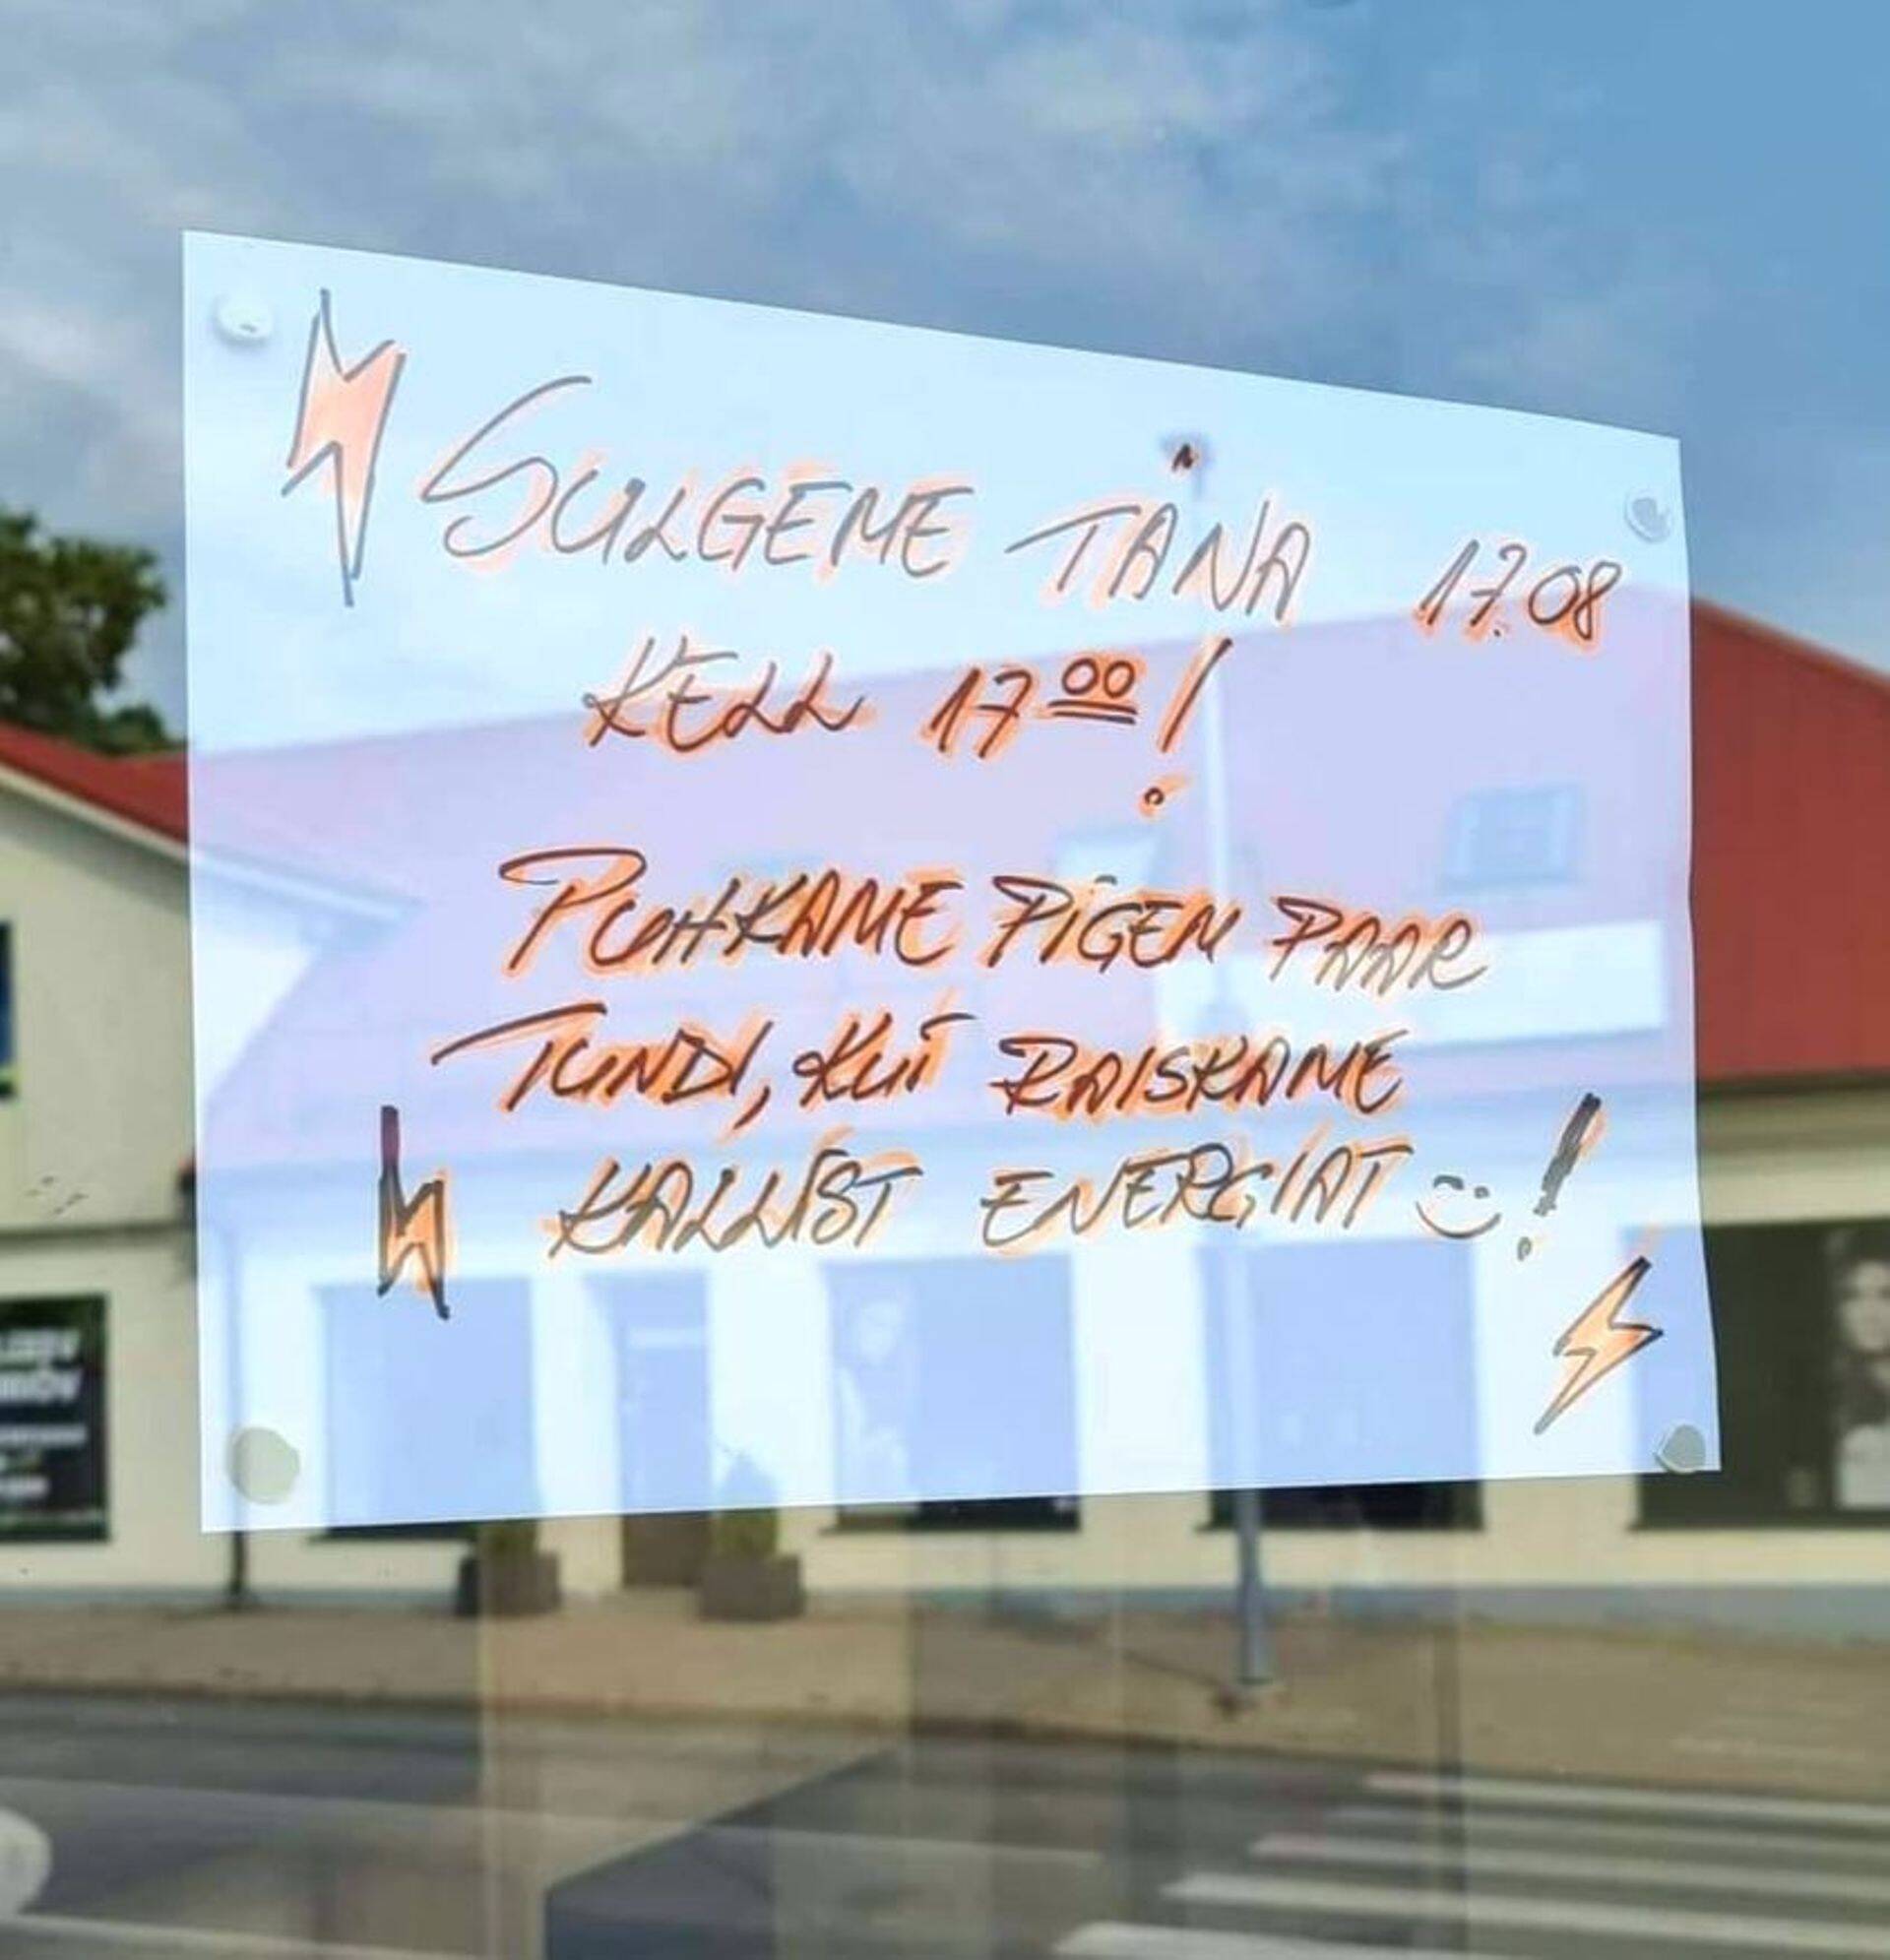 SULGEME TÄNA 17.08
KELL 17 00!
PUHKAME PIGEM PAAR
TUNDI, KUI RAISKAME
KALLIST ENERGIAT !